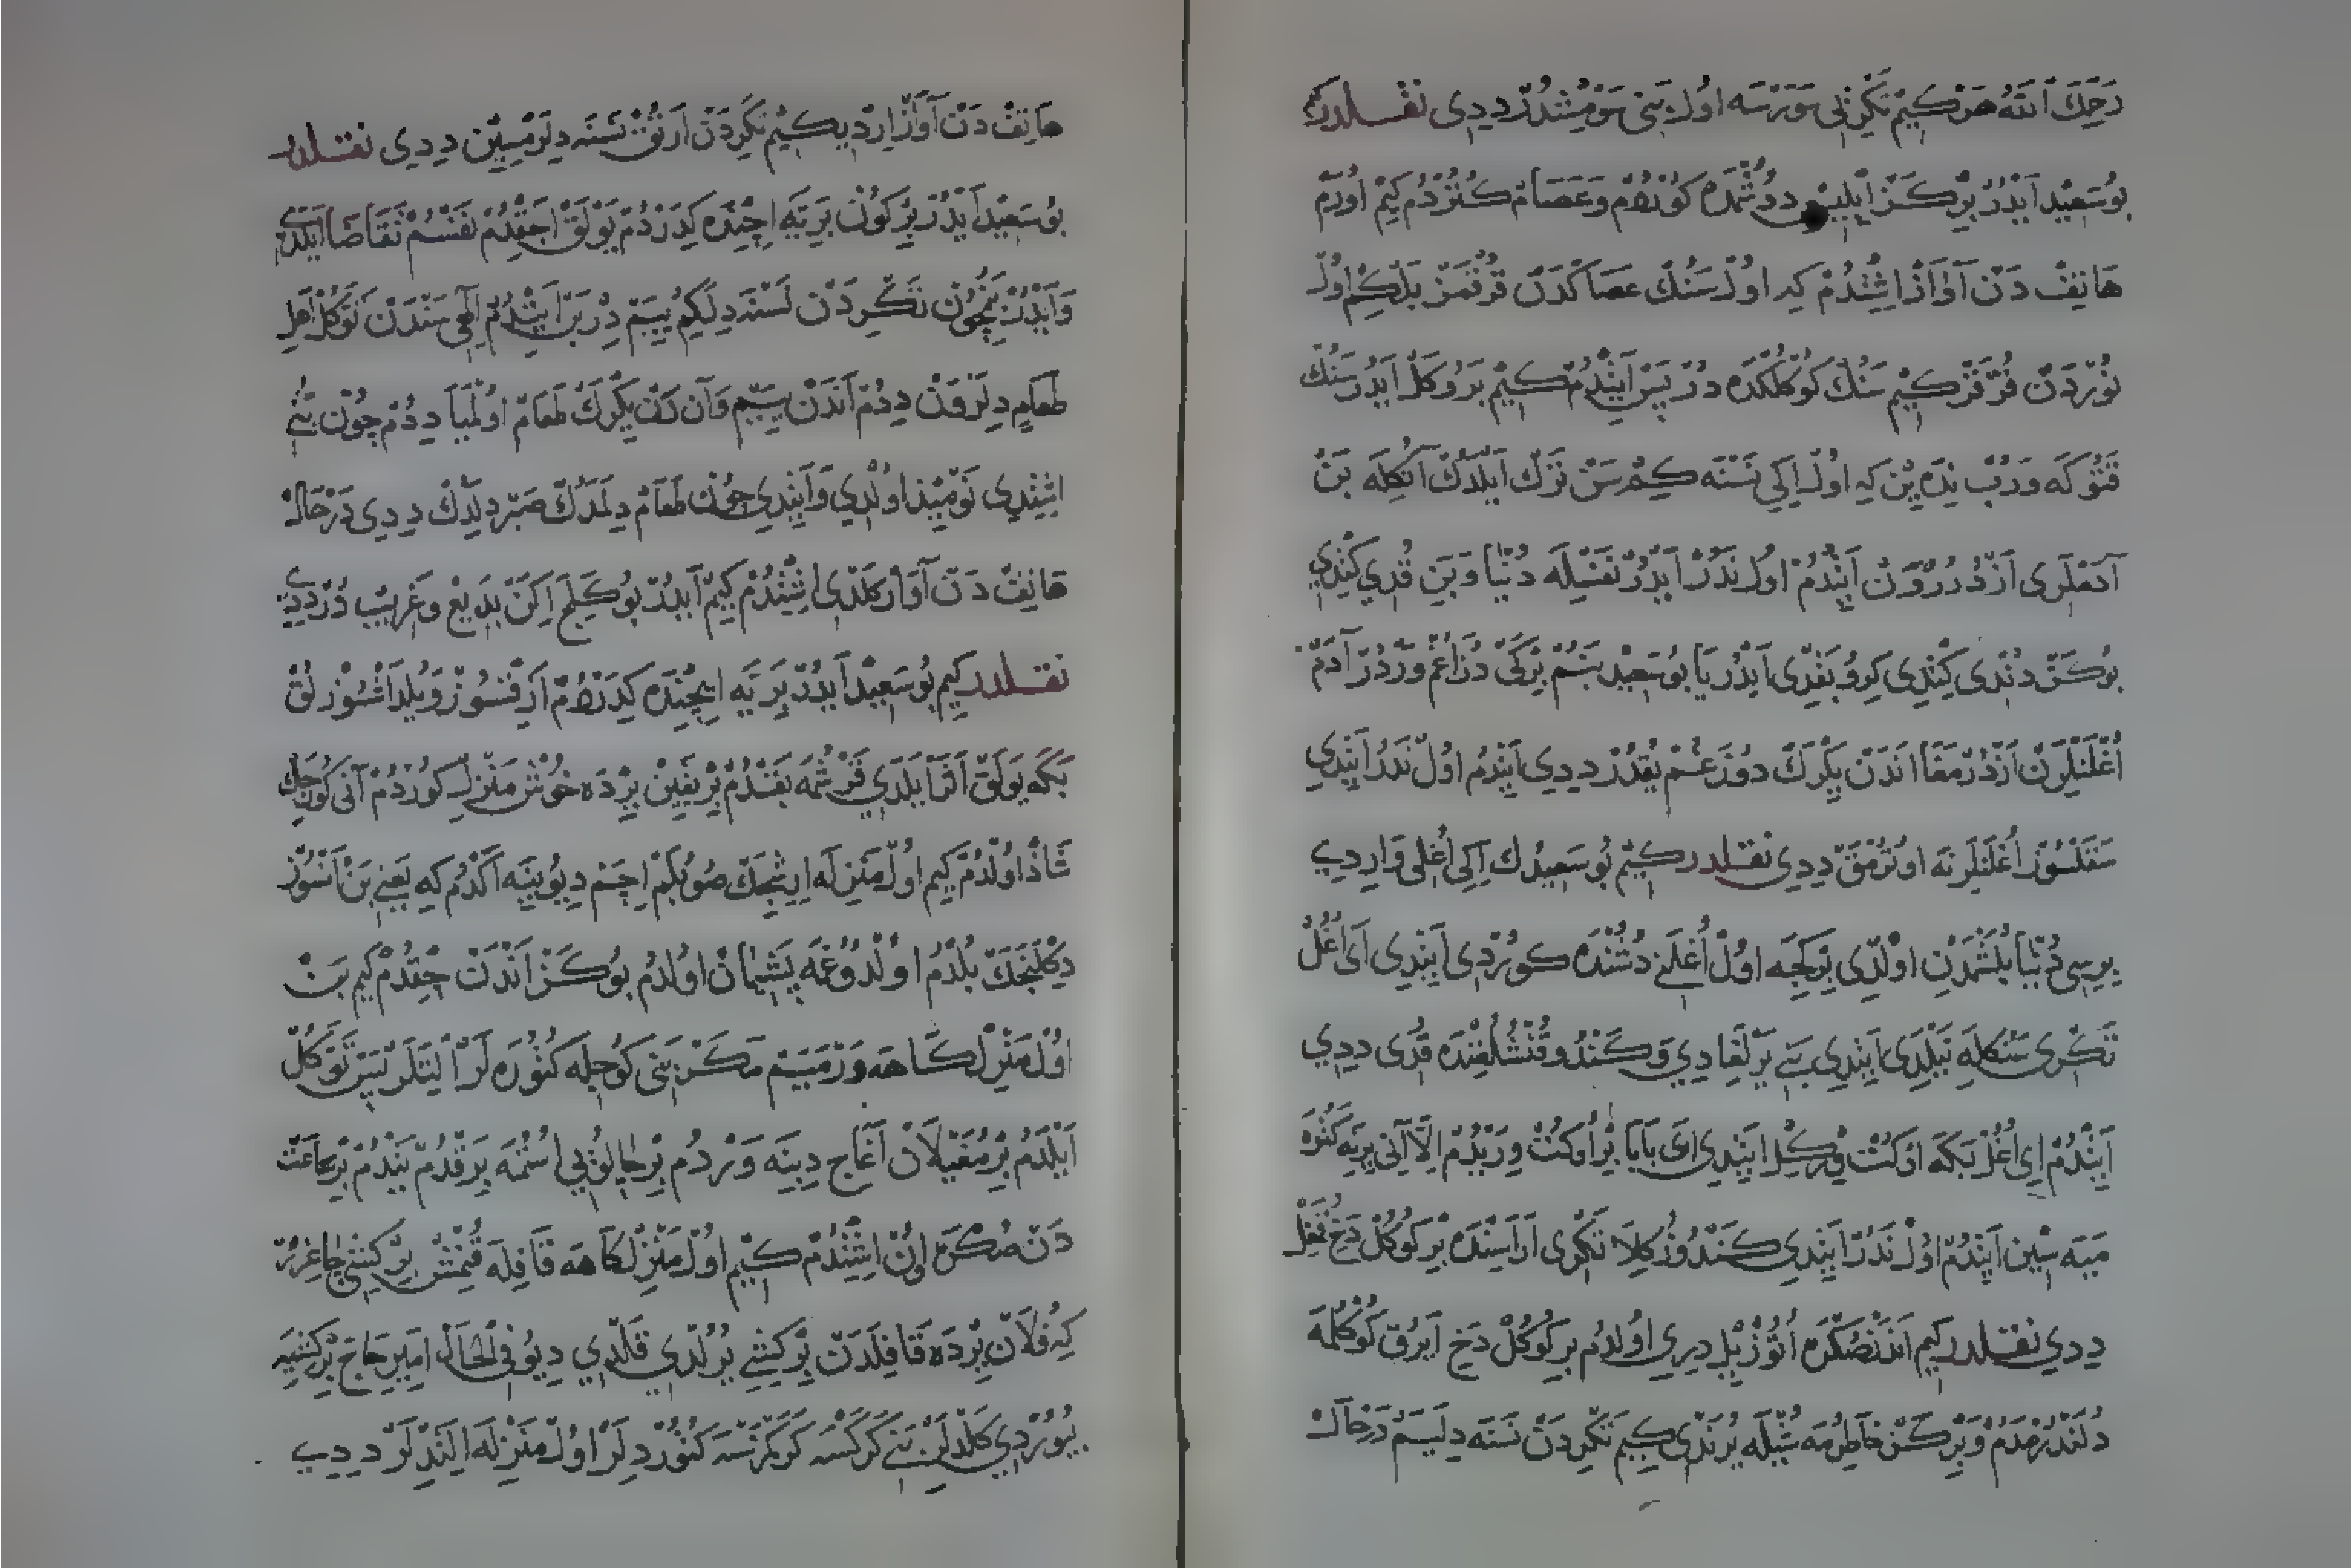 رَحِمَكَ اَللّٰهُ هَرْ كِيمْ تَكْرِيِ سَوَرْسَه اُولْ بَنِي سَوْمِشْدُرْ دِدِي نقلدر
بُوسَعِيدْ اَيْدُرْ بِرْ كَزْ اِبْلِيسِ دُوشُمْدَه كُورْدُمْ وَعَصَامْ كُتُرْدُمْ كِيمْ اُورَمْ
هَاتِفْ دَنْ آوَازْ اِشِتْدُمْ كِه اُولْ سَنُكْ عَصَاكْدَنْ قُرْقْمَزْ بَلْكِمْ اُولْ
نُورْدَنْ قُرْقَرْ كِيمْ سَنُكْ كُوكْلُكْدَه دُرْ پَسْ اَيِتْدُمْ كِيمْ بَرُو كَلْ اَيْدُرْ سَنُكْ
قَتُوكَه وَرُبْ نِدَه يِنْ كِه اُولْ اِكِي نَسْنَه كِمْ سَنْ تَرْكْ اَيْلَدُكْ اَنُكِلَه بَنْ
آدَمْلَرِي اَزْدُرُرْوَنْ اَيِتْدُمْ اُولْ نَدُرْ اَيْدُرْ نَفْسِلَه دُنْيَا وَبَنِ قُدِي كِتْدِي
بِرْ كَزْ دُنْدِي كِنْدِي كِرُو بَقْدِي اَيْدُرْ يَا بُوسَعِيدْ بَنُمْ بِرْكَزْ دُزَاغُمْ وَرْدُرْ آدَمْ
اُغْلَنْلَرِنْ اَزْدُرْمَغَا اَنْدَنْ يِكْرَكْ دُوزَغُمْ يُقْدُرْ دِدِي اَيِتْدُمْ اُولْ نَدُرْ اَيِتْدِي
سَقَلْسُوزْ اُغْلَنْلَرْنَه اُوتُرْمَقْ دِدِي نقلدر كِيمْ بُوسَعِيدُكْ اِكِي اُغْلِي وَارِدِي
بِرِسِي دُنْيَا بُلَشْمَدِنْ اُولْدِي بِرْ كِجَه اُولْ اُغْلَنِ دُشُنْدَه كُورْدِي اَيِتْدِي اَيْ اُغُلْ
تَكْرِي سَنُكِلَه نَيْلَدِي اَيِتْدِي بَنِي يَرْلِغَادِي وَكَنْدُو قُنْشُلِغِنْدَه قُدِي دِدِي
اَيِتْدُمْ اِي اُغُلْ بَكَه اُوكُتْ وِرْكِلْ اَيِتْدِي اَيْ بَابَا بِرْ اُوكُتْ وِرَيْدُمْ اِلَّا آنِي يِرِنَه كَتُرَه
مَيَه سِينْ اَيِتْدُمْ اُولْ نَدُرْ اَيِتْدِي كَنْدُوزُكِلَا تَكْرِي اَرَاسِنْدَه بِرْ كُوكُلْ دَخِ
دِدِي نقلدر كِيمْ اَنْدَنْصُكْرَه اُتُوزْ يِلْ دِرِي اُولْدُمْ بِرْ كُوكُلْ دَخِ اَيْرُقْ كُوكْلُمَه
دُلَنْدُرْمَدُمْ وَبِرْ كَزْ خَاطِرُمَه شُيْلَه يُرَنْدِي كِيمْ تَكْرِدَنْ نَسْنَه دِلَيَمْ دَرْحَالْ
هَاتِفْ دَنْ آوَازْ اِرْدِي كِيمْ تَكْرِدَنْ اَرْتُقْ نَسْنَه دِلَرْمِسِينْ دِدِي نقلدر
بُوسَعِيدْ اَيْدُرْ بِرْ كُونْ بَرِيَّه اِچِنْدَه كِدَرْدُمْ يَوْلَقْ اَجِقْدُمْ نَفْسُمْ تَقَاضَا اَيْلَدِي
وَاَيْدُرْ نِيچُونْ تَكْرِدَنْ نَسْنَه دِلَكِمْ يِيَمْ دِرْ بَنْ اَيِتْدُمْ اِلٰهِي سَنْدَنْ تَوَكُّلْ اَهْلِ
طَعَامِ دِلَرْوَنْ دِدُمْ اَنْدَنْ يِيَمْ وَآنْدَنْ يِكْرَكْ طَعَامْ اُولْمَيَا دِدُمْ چُونْ بُنِي
اِشِتْدِي نَوْمِيذْ اُولْدِي وَاَيِتْدِي چُونْ طَعَامْ دِلَمَدُكْ صَبْرْ دِلَدُكْ دِدِي دَرْحَالْ
هَاتِفْ دَنْ آوَازْ كَلْدِي اِشِتْدُمْ كِيمْ اَيْدُرْ بُو كَلَجِ اِكَنْ بَدِيعْ وَغَرِيبْ دُرْ دِدِي
نقلدر كِيمْ بُوسَعِيدْ اَيْدُرْ بَرِيَّه اِيچِنْدَه كِدَرْدُمْ اَزِقْسُوزْ وَيُلْدَاشْسُوزْلُقْ
بَكَه يَوْلَقْ اَثَرْ اَيْلَدِي قَرْشُمَه بَقْدُمْ بِرْ يَقِينْ يِرْدَه خُوشْ مَنْزِلْ كُورْدُمْ آنِي كُورِجَكْ
شَاذْ اُولْدُمْ كِيمْ اُولْ مَنْزِلَه اِيشِجَكْ صُو بُلَمْ اِچَمْ دِيُو يِنَه اَكْدُمْ كِه يَعْنِي بَنْ اَنْسُوزْ
دِكْلِنِجَكْ بُلْدُمْ اُولْدُوغُمَه پَشِيمَانْ اُولْدُمْ بُو كَزْ اَنْدَنْ چِقْدُمْ كِيمْ بَنْ
اُولْ مَنْزِلْكَاهَه وَرْمَيَمْ مَكَرْ بَنِي كُوجِلَه كُتُورَه لَرْ اِيلْتَلَرْ پَسْ تَوَكُّلْ
اَيْلَدُمْ بِرْ مُغَيْلَانْ آغَاجِ دِبِنَه وَرْدُمْ بِرْ چَالُويِ اُسْتُمَه بِرَقْدُمْ يَتْدُمْ بِرْ سَاعَتْ
دَنْ صُكْرَه اُونْ اِشِتْدُمْ كِيمْ اُولْ مَنْزِلْكَاهَه قَافِلَه قُنْمِشْ بِرْ كِشِي چَاغِرُرْ
كِه فُلَانْ يِرْدَه قَافِلَدَنْ بِرْ كِشِي يُرُلْدِي قَلْدِي دِيُو فِي الْحَالْ اَمِيرِ حَاجْ بِرْ كِشِيَه
بُيُرْدِي كَلْدِلَرْ بَنِي كَرَكْسَه كَرَكْمَزْسَه كَتُورْدِلَرْ اُولْ مَنْزِلَه اِلَتْدِلَرْ دِدِي